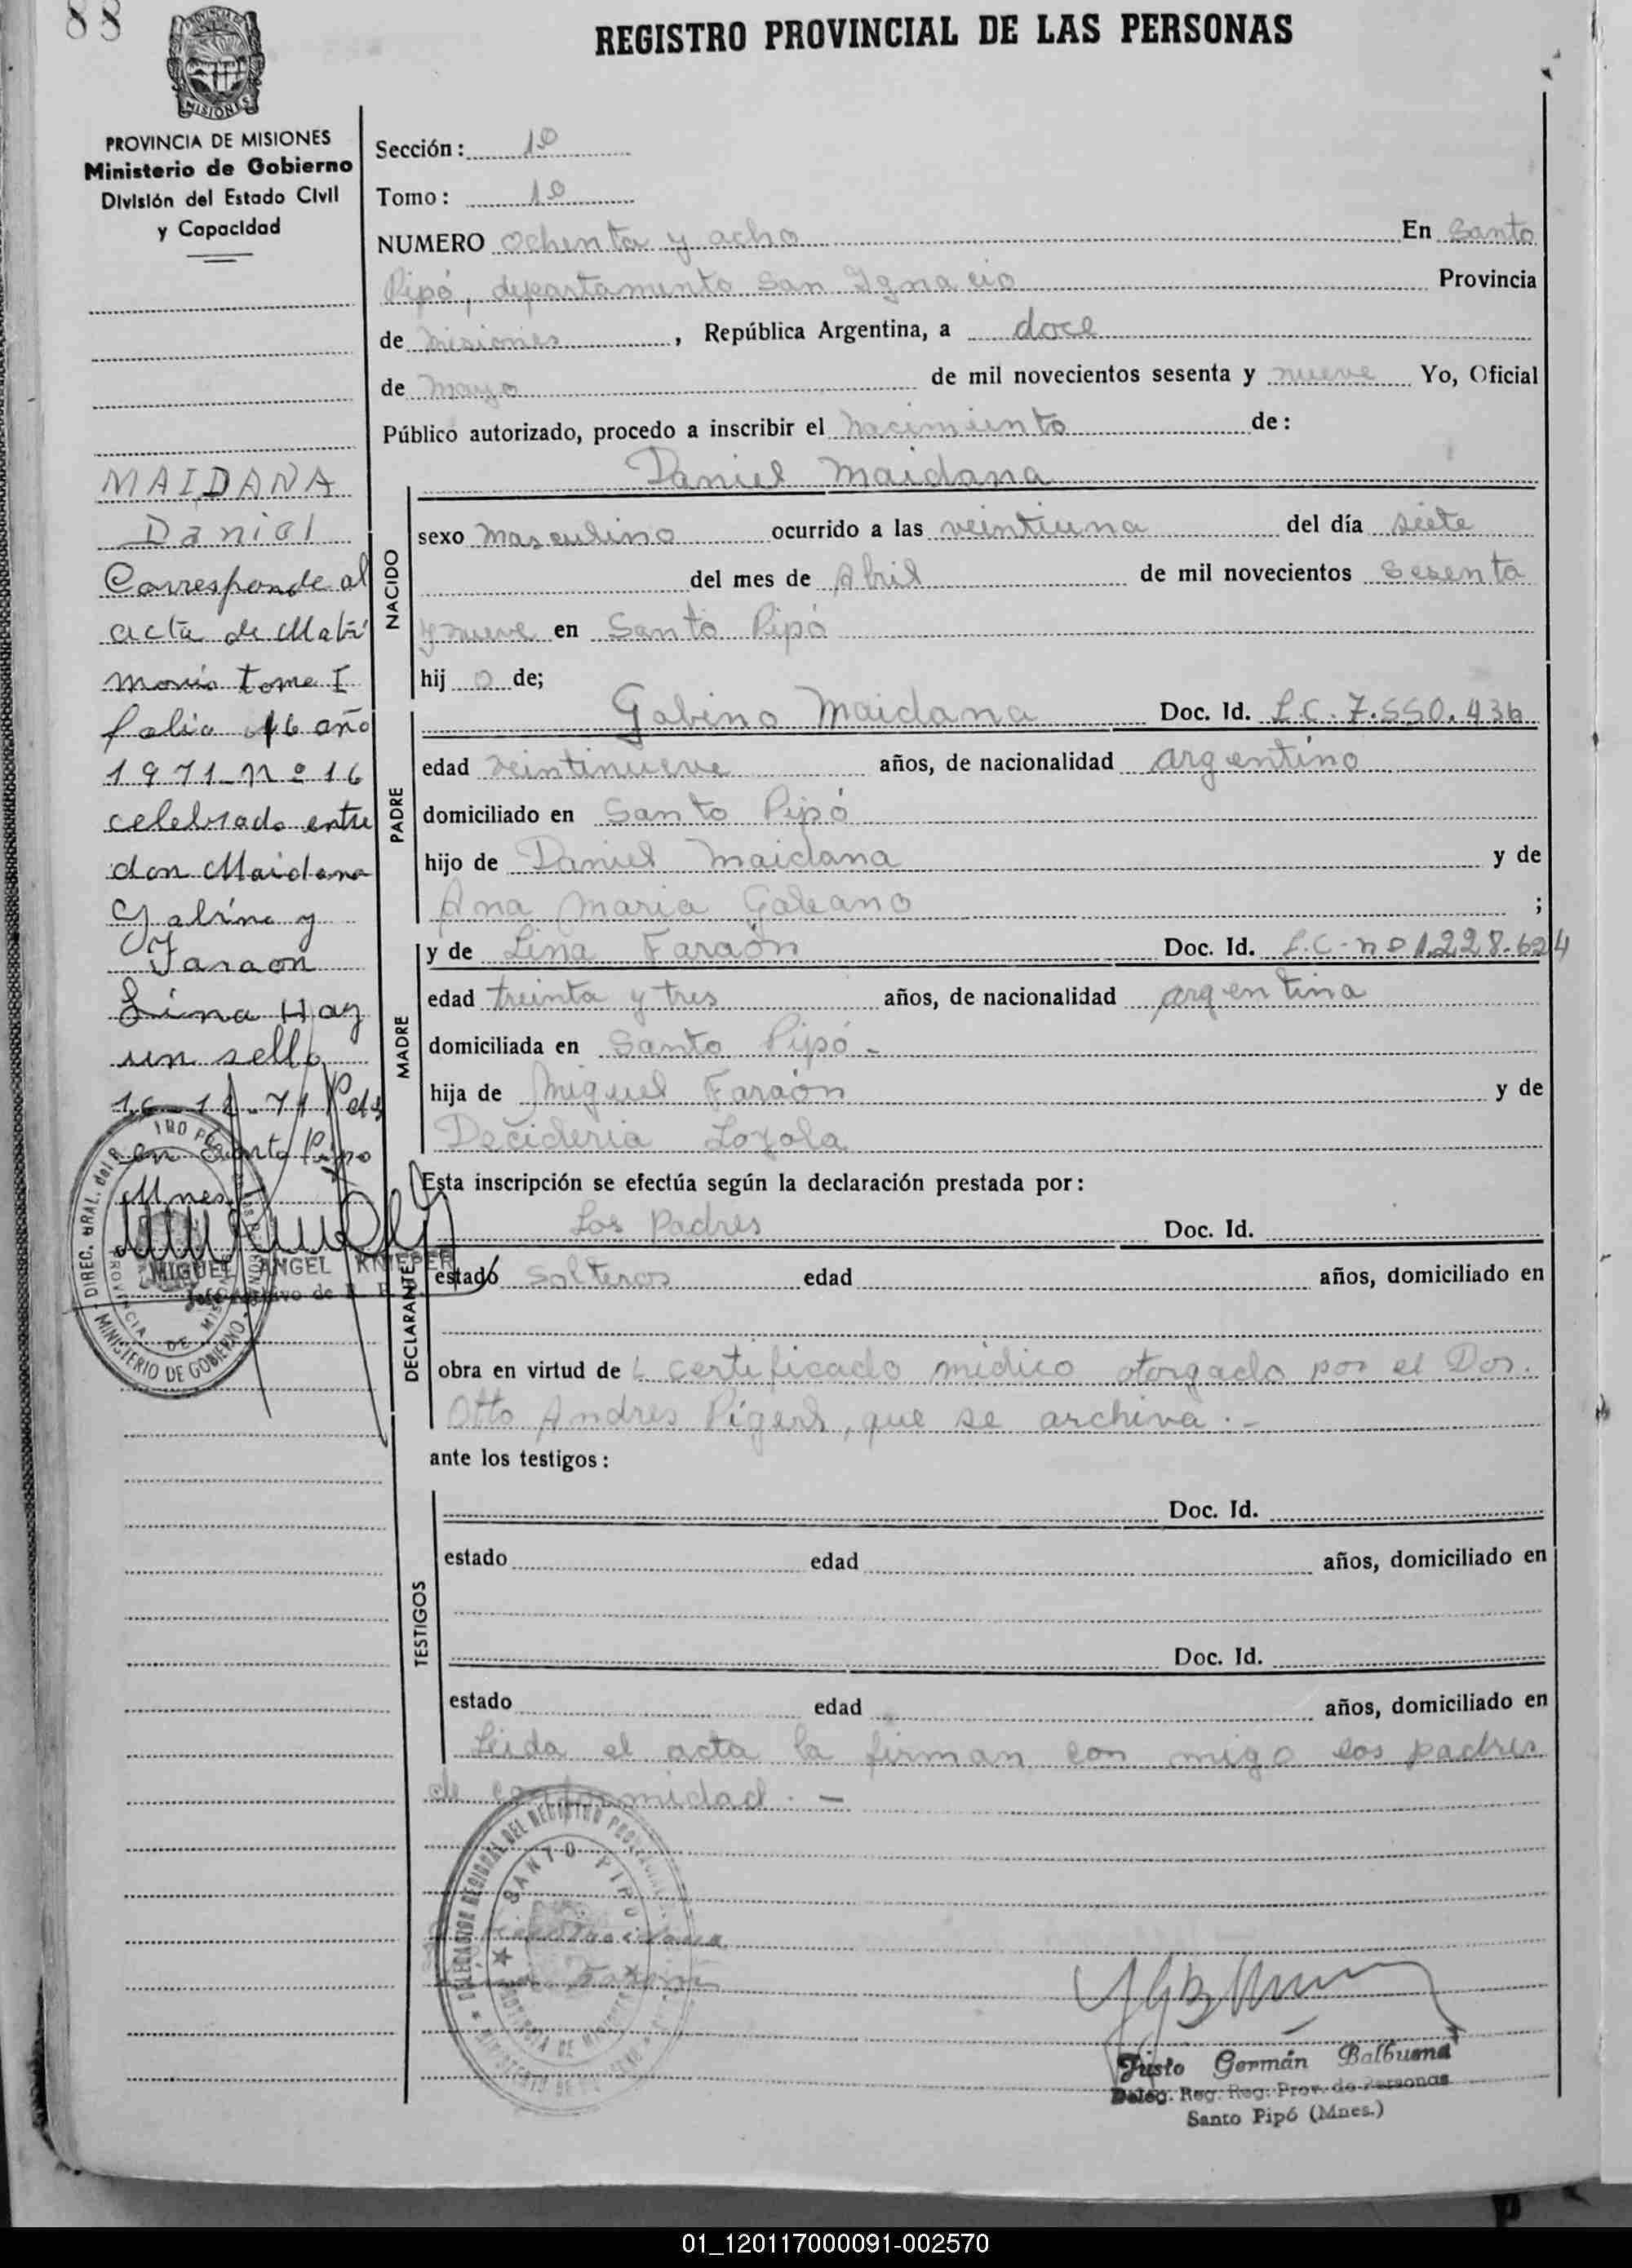 88
REGISTRO PROVINCIAL DE LAS PERSONAS
MISIONES
PROVINCIA DE MISIONES
Ministerio de Gobierno
División del Estado Civil
y Capacidad
MAIDANA
Daniel
Corresponde al
acta de Matri
monio tomo I
folio 16 año
1971-nº 16
celebrado entre
don Maidana
Gabino y
Faraon
Lina Hay
un sello
16-12-71 Pdas
en Santo Pipo
Mnes
MIGUEL ANGEL KNIEPER
Jefe Archivo de R. P.
DIREC. GRAL. del R
MINISTERIO DE GOBIERNO
PROVINCIA DE MIS
Sección: 1º
Tomo: 1º
NUMERO ochenta y acho En Santo
Pipó, departamento San Ignacio Provincia
de Misiones, República Argentina, a doce
de mayo de mil novecientos sesenta y nueve Yo, Oficial
Público autorizado, procedo a inscribir el nacimiento de:
Daniel Maidana
NACIDO
sexo masculino ocurrido a las veintiuna del día siete
del mes de Abril de mil novecientos sesenta
y nueve en Santo Pipó
hij o de;
PADRE
Gabino Maidana Doc. Id. L.C. 7.550.436
edad veintinueve años, de nacionalidad argentino
domiciliado en Santo Pipó
hijo de Daniel Maidana y de
Ana Maria Galeano ;
MADRE
y de Lina Faraón Doc. Id. L.C-nº 1.228.624
edad treinta y tres años, de nacionalidad argentina
domiciliada en Santo Pipó -
hija de Miguel Faraón y de
Decideria Lozola
DECLARANTE
Esta inscripción se efectúa según la declaración prestada por:
Los Padres Doc. Id.
estado Solteros edad años, domiciliado en
obra en virtud de L certificado médico otorgado por el Dor.
Otto Andres Pigerl, que se archiva.-
ante los testigos:
TESTIGOS
Doc. Id.
estado edad años, domiciliado en
Doc. Id.
estado edad años, domiciliado en
Leida el acta la firman con migo los padres
de conformidad. -
DELEGACION REGIONAL DEL REGISTRO
SANTO PIPO
PROVINCIA DE MISIONES
MINISTERIO DE GOBIERNO
Justo Germán Balbuena
Deleg. Reg. Reg. Prov. de Personas
Santo Pipó (Mnes.)
01_120117000091-002570